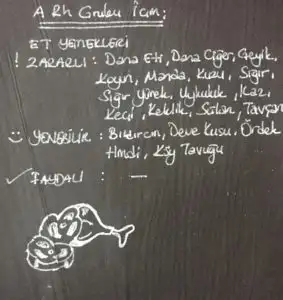 A Rh Grubu İçin;
ET YEMEKLERİ
! ZARARLI : Dana Eti, Dana Ciğer, Geyik,
Koyun, Manda, Kuzu, Sığır,
Sığır yürek, Uykuluk, Kaz,
Keçi, Keklik, Sülün, Tavşan
YENEBİLİR : Bıldırcın, Deve Kuşu, Ördek
Hindi, Köy Tavuğu
✓ FAYDALI : —